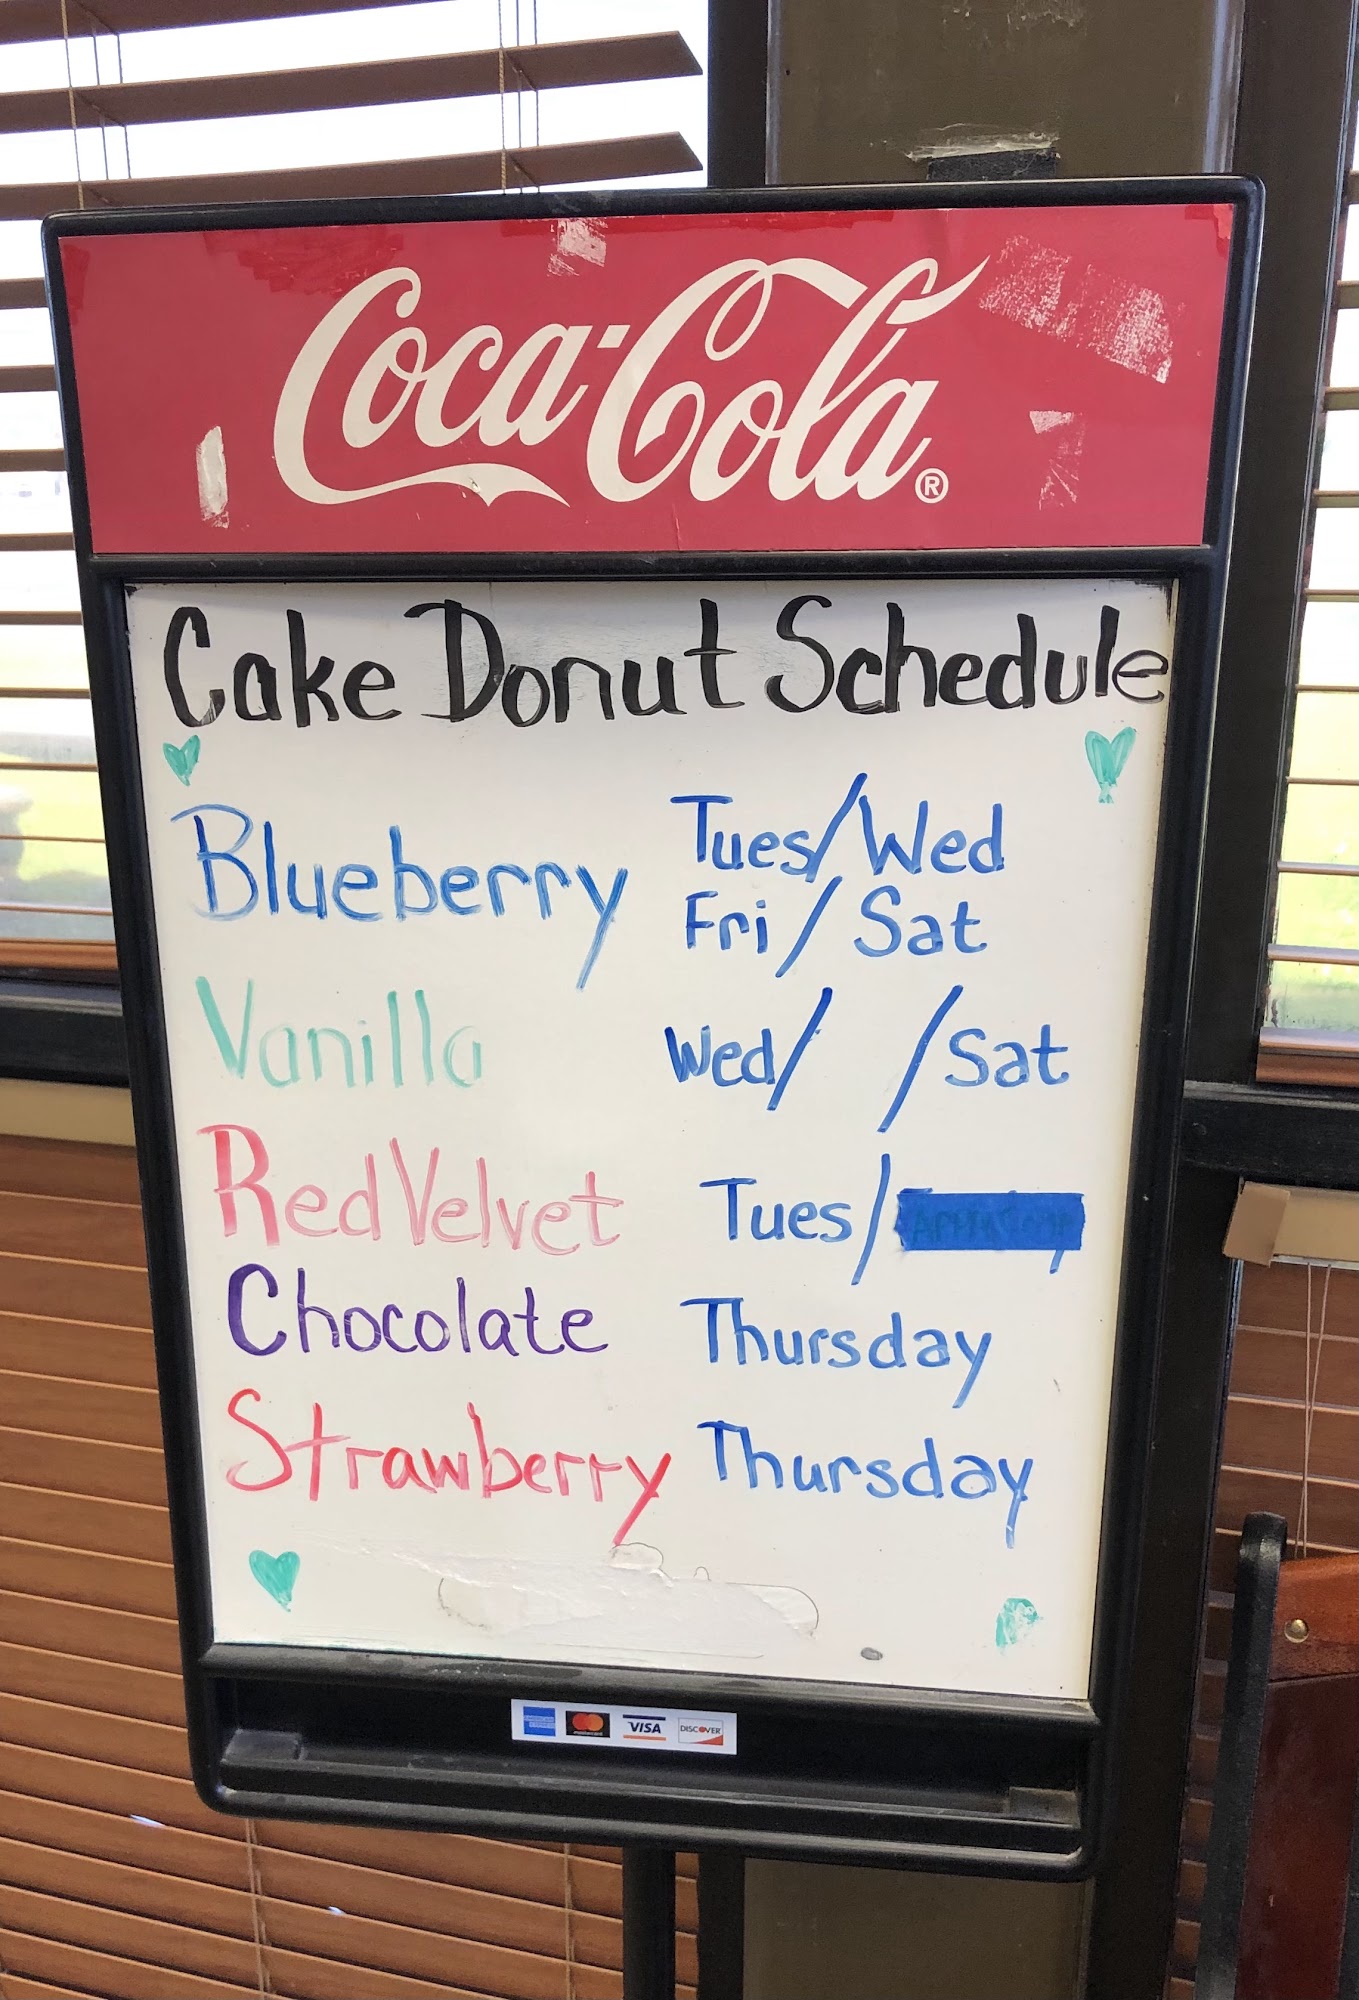 Coca-Cola®
Cake Donut Schedule
Blueberry Tues/Wed
Fri/Sat
Vanilla Wed/ /Sat
Red Velvet Tues/
Chocolate Thursday
Strawberry Thursday
AMERICAN EXPRESS mastercard VISA DISCOVER